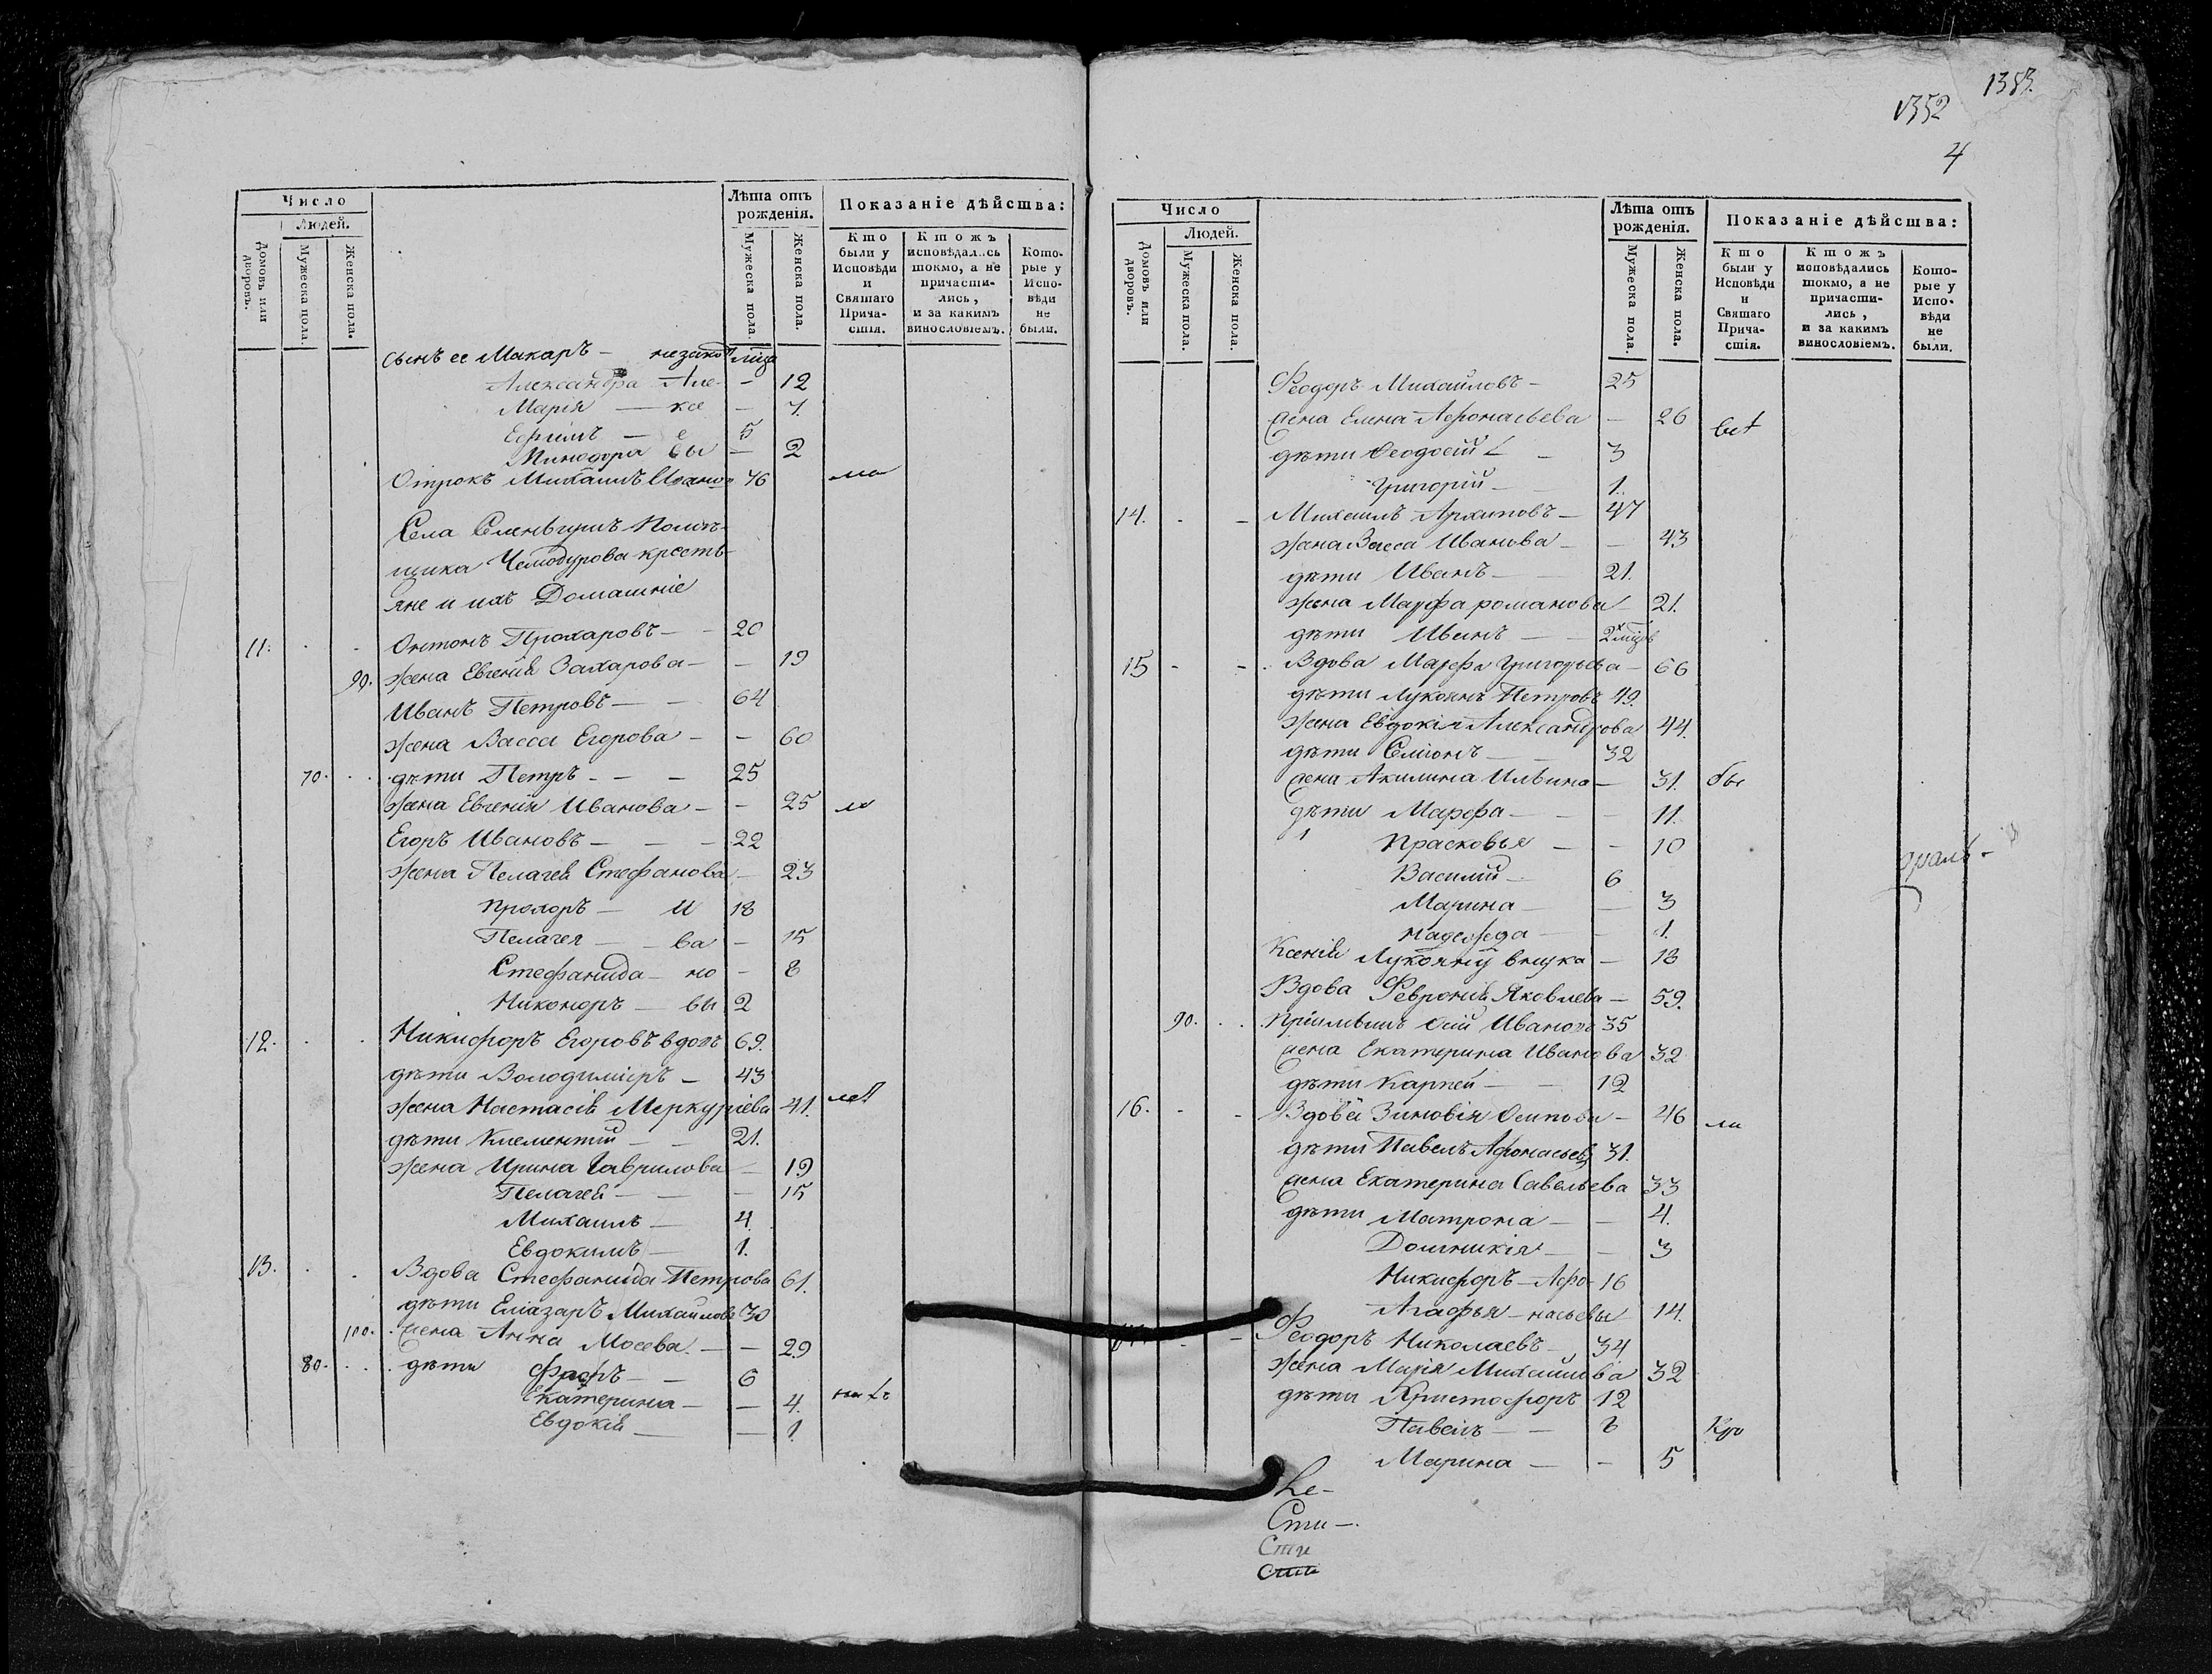 Число
Людей.
Домовъ или дворовъ.
Мужеска пола.
Женска пола.
Лѣта отъ рожденія.
Мужеска пола.
Женска пола.
Показаніе дѣйства:
Кто были у Исповѣди и Святаго Причастія.
Ктожъ исповѣдались токмо, а не причастились, и за какимъ винословіемъ.
Которые у Исповѣди не были.
сынъ ее Макаръ –
Александра Але- – 12
Марія – ксе – 7.
Ефимъ – е 5
Минодора вы – 2
Отрокъ Михаилъ Ивано 76
Села
щика Чемодурова кресть-
яне и ихъ Домашніе
11. Онтонъ Прохаровъ – – 20
90. жена Евгенія Захарова – – 19
Иванъ Петровъ – – 64
жена Васса Егорова – – 60
70. дѣти Петръ – – – 25
жена Евгенія Иванова – – 25 ли
Егоръ Ивановъ – – – 22
жена Пелагея Стефанова – 23
Прохоръ – И 18
Пелагея – ва – 15
Стефанида – но – 8
Никоноръ – вы 2
12. Никифоръ Егоровъ вдовъ 69.
дѣти Володимиръ – 43
жена Настасія Меркуріева 41.
дѣти Климентій – – 21.
жена Ирина Гаврилова – 19
Пелагея – – – 15
Михаилъ – 4.
Евдокимъ – 1.
13. Вдова Стефанида Петрова 61.
дѣти Еліазаръ Михаиловъ 30
100. жена Анна Мосева. – – 29
80. дѣти Фролъ – – 6
Екатерина – – 4.
Евдокія – – 1
1383.
1352
4
Число
Людей.
Домовъ или дворовъ.
Мужеска пола.
Женска пола.
Лѣта отъ рожденія.
Мужеска пола.
Женска пола.
Показаніе дѣйства:
Кто были у Исповѣди и Святаго Причастія.
Ктожъ исповѣдались токмо, а не причастились, и за какимъ винословіемъ.
Которые у Исповѣди не были.
Феодоръ Михаиловъ – 25
жена Елена Афонасьева – 26
дѣти Феодосій – 3
Григорій – 1.
14. Михаилъ Архиповъ – 47
жена Васса Иванова – – 43
дѣти Иванъ – – 21.
жена Марфа романова – 21.
дѣти Иванъ – – 2х
15 Вдова Марфа Григорьева – 66
дѣти Лукоянъ Петровъ 49.
жена Евдокія Александрова 44.
дѣти Симіонъ – – 32
жена Акилина Ильина – 31. бы
дѣти Марфа – – – 11.
Прасковья – – 10
Василій – 6
Марина – – 3
надежда – – 1.
Ксенія Лукояну внука – 18
Вдова Февронія Яковлева – 59.
90. Иванов 35
жена Екатерина Иванова 32
дѣти Карпей – – 12
16. Вдова Зиновія Осипова – 46 ли
дѣти Павелъ Афонасьевъ 31.
жена Екатерина Савельева 33
дѣти Матрона – – 4.
Домникія – – 3
Никифоръ – Афо- 16
Агафья – насьевы 14.
Феодоръ Николаевъ – 34
жена Марія Михаилова 32
дѣти Христофоръ 12
Павелъ – –
Марина – – 5
Сти –
Сти